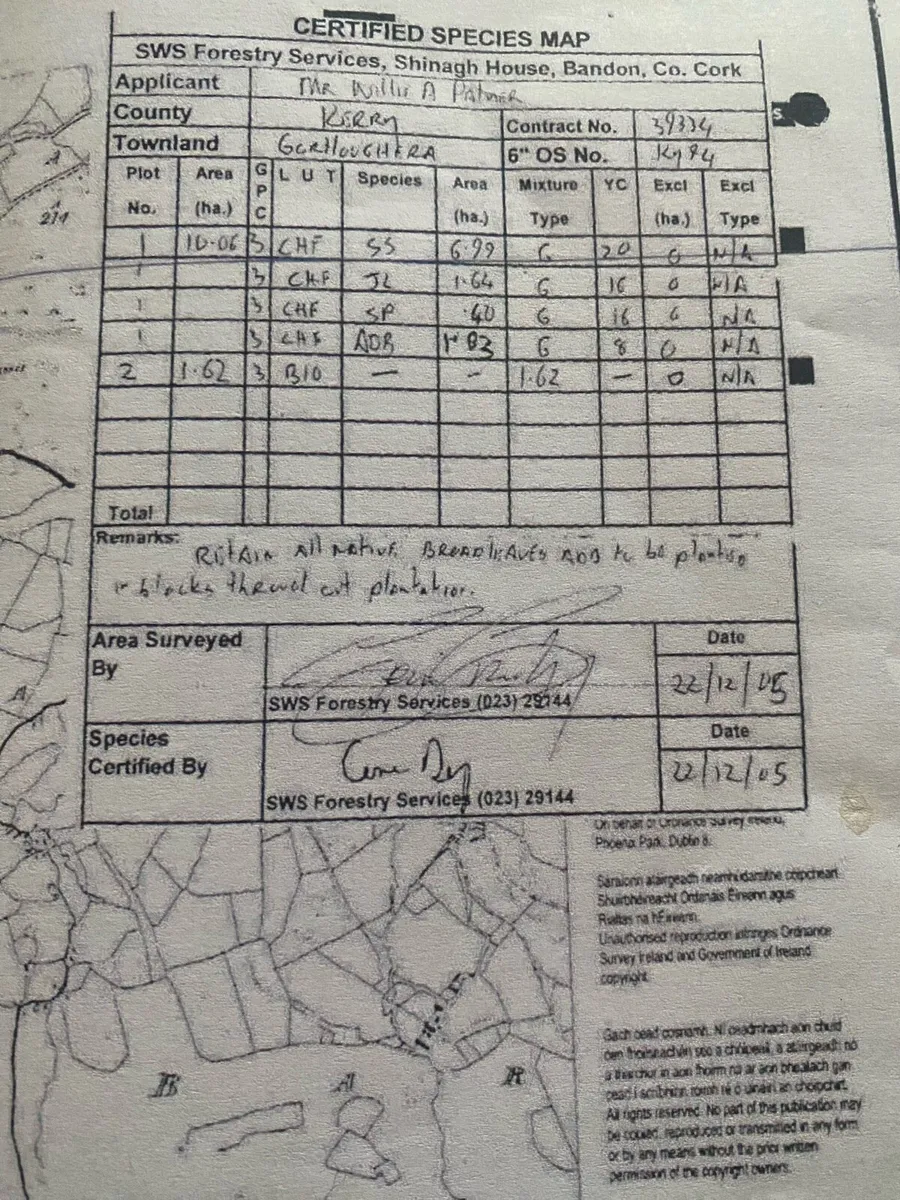 CERTIFIED SPECIES MAP
SWS Forestry Services, Shinagh House, Bandon, Co. Cork
Applicant Mr Willie A Palmer
County KERRY Contract No. 39334
Townland 6" OS No. Ky 94
Plot No. Area (ha.) GPC LUT Species Area (ha.) Mixture Type YC Excl (ha.) Excl Type
1 10.06 3 CHF SS 6.99 G 20 0 N/A
1 3 CHF JL 1.64 G 16 0 N/A
1 3 CHF SP .40 G 16 0 N/A
1 3 CHF ADB 1.03 G 8 0 N/A
2 1.62 3 BIO — - 1.62 — 0 N/A
Total
Remarks:
RETAIN All NATIVE BROADLEAVES ADB to be planted
in blocks throul out plantation.
Area Surveyed By Date
22/12/05
SWS Forestry Services (023) 29144
Species Certified By Date
22/12/05
SWS Forestry Services (023) 29144
S.
A
214
A
On behalf of Ordnance Survey Ireland,
Phoenix Park, Dublin 8.
Sáraíonn atáirgeadh neamhúdaraithe cóipcheart
Shuirbhéireacht Ordanáis Éireann agus
Rialtas na hÉireann.
Unauthorised reproduction infringes Ordnance
Survey Ireland and Government of Ireland
copyright.
Gach cead cosnamh. Ní ceadmhach aon chuid
den fhoilseachán seo a chóipeáil, a atáirgeadh nó
a tharchur in aon fhoirm ná ar aon bhealach gan
cead i scríbhinn roimh ré ó úinéirí an chóipchirt.
All rights reserved. No part of this publication may
be copied, reproduced or transmitted in any form
or by any means without the prior written
permission of the copyright owners.
B A R